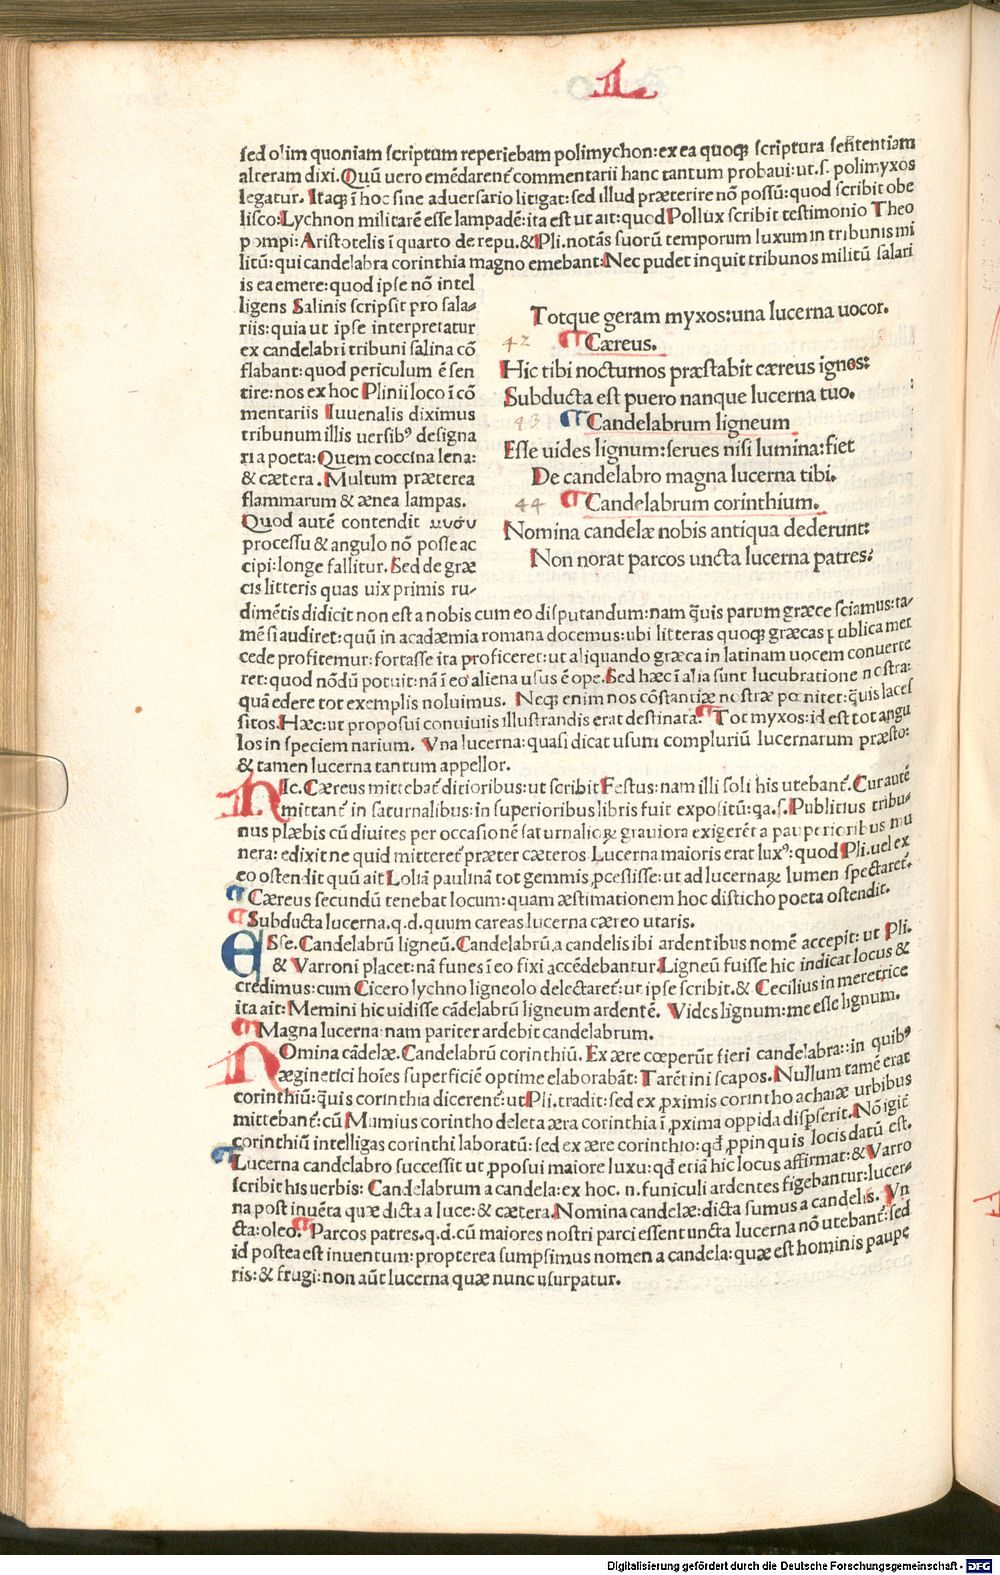 sed olim quoniam scriptum reperiebam polimychon: ex ea quoqꝫ scriptura sententiam
alteram dixi. Quũ uero emẽdarent̃ commentarii hanc tantum probaui: ut. s. polimyxos
legatur. Itaqꝫ ĩ hoc sine aduersario litigat: sed illud præterire nõ possũ: quod scribit obe
lisco: Lychnon militarẽ esse lampadẽ: ita est ut ait: quod Pollux scribit testimonio Theo
pompi: Aristotelis ĩ quarto de repu. & Pli. notãs suorũ temporum luxum in tribunis mi
litũ: qui candelabra corinthia magno emebant: Nec pudet inquit tribunos militũ salari
is ea emere: quod ipse nõ intel
ligens Salinis scripsit pro sala⸗
riis: quia ut ipse interpretatur
ex candelabri tribuni salina cõ
flabant: quod periculum ẽ sen
tire: nos ex hoc Plinii loco ĩ cõ
mentariis Iuuenalis diximus
tribunum illis uersibꝰ designa
ri a poeta: Quem coccina lena:
& cætera. Multum præterea
flammarum & ænea lampas.
Quod autẽ contendit
processu & angulo nõ posse ac
cipi: longe fallitur. Sed de græ
cis litteris quas uix primis ru⸗
Totque geram myxos: una lucerna uocor.
42 Cæreus.
Hic tibi nocturnos præstabit cæreus ignes:
Subducta est puero nanque lucerna tuo.
43 Candelabrum ligneum
Esse uides lignum: serues nisi lumina: fiet
De candelabro magna lucerna tibi.
44 Candelabrum corinthium.
Nomina candelæ nobis antiqua dederunt:
Non norat parcos uncta lucerna patres:
dimẽtis didicit non est a nobis cum eo disputandum: nam q̃uis parum græce sciamus: ta⸗
mẽ si audiret: quũ in acadæmia romana docemus: ubi litteras quoqꝫ græcas publica mer
cede profitemur: fortasse ita proficeret: ut aliquando græca in latinam uocem conuerte
ret: quod nõdũ potuit: nã ĩ eo aliena usus ẽ ope. Sed hæc ĩ alia sunt lucubratione nostra:
quã edere tot exemplis noluimus. Neqꝫ enim nos cõstantiæ nostræ pœnitet: q̃uis laces
sitos. Hæc: ut proposui conuiuiis illustrandis erat destinata. Tot myxos: id est tot angu
los in speciem narium. Vna lucerna: quasi dicat usum compluriũ lucernarum præsto:
& tamen lucerna tantum appellor.
HIc. Cæreus mittebat̃ ditioribus: ut scribit Festus: nam illi soli his utebant̃. Cur autẽ
mittant̃ in saturnalibus: in superioribus libris fuit expositũ: qa. s. Publitius tribu⸗
nus plæbis cũ diuites per occasionẽ saturnalioꝝ grauiora exigerẽt a pauperioribus mu
nera: edixit ne quid mitteret̃ præter cæteros. Lucerna maioris erat luxꝰ: quod Pli. uel ex
eo ostendit quũ ait Loliã paulinã tot gemmis ꝓcessisse: ut ad lucernaꝝ lumen spectaret̃.
Cæreus secundũ tenebat locum: quam æstimationem hoc disticho poeta ostendit.
Subducta lucerna. q. d. quum careas lucerna cæreo utaris.
ESse. Candelabrũ ligneũ. Candelabrũ a candelis ibi ardentibus nomẽ accepit: ut Pli.
& Varroni placet: nã funes ĩ eo fixi accẽdebantur. Ligneũ fuisse hic indicat locus &
credimus: cum Cicero lychno ligneolo delectaret̃: ut ipse scribit. & Cecilius in meretrice
ita ait: Memini hic uidisse cãdelabrũ ligneum ardentẽ. Vides lignum: me esse lignum.
Magna lucerna: nam pariter ardebit candelabrum.
NOmina cãdelæ. Candelabrũ corinthiũ. Ex ære cœperũt fieri candelabra: in quibꝰ
æginetici hoĩes superficiẽ optime elaborabãt: Tarẽtini scapos. Nullum tamẽ erat
corinthiũ: q̃uis corinthia dicerent̃: ut Pli. tradit: sed ex ꝓximis corintho achaiæ urbibus
mittebant̃: cũ Mumius corintho deleta æra corinthia ĩ ꝓxima oppida dispserit. Nõ igit̃
corinthiũ intelligas corinthi laboratũ: sed ex ære corinthio: qđ ꝓpinquis locis datũ est.
Lucerna candelabro successit ut ꝓposui maiore luxu: qđ etiã hic locus affirmat: & Varro
scribit his uerbis: Candelabrum a candela: ex hoc. n. funiculi ardentes figebantur: lucer⸗
na post inuẽta quæ dicta a luce: & cætera. Nomina candelæ: dicta sumus a candelis. Vn
cta: oleo. Parcos patres. q. d. cũ maiores nostri parci essent uncta lucerna nõ utebant̃: sed
id postea est inuentum: propterea sumpsimus nomen a candela: quæ est hominis paupe
ris: & frugi: non aũt lucerna quæ nunc usurpatur.
Digitalisierung gefördert durch die Deutsche Forschungsgemeinschaft - DFG